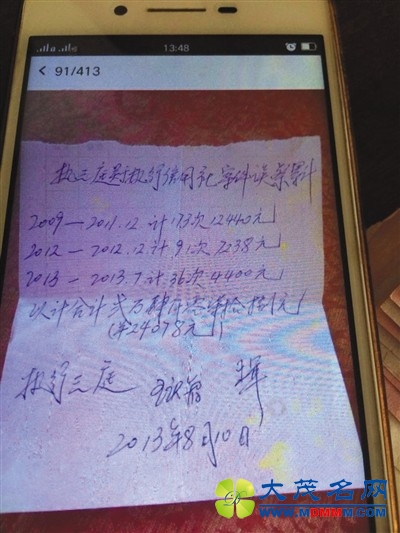 13:48
91/413
执三庭对执行信用社案件误餐累计
2009—2011.12.计173次12440元
2012—2012.12.计91次7238元
2013—2013.7计36次4400元
以计合计贰万肆仟零柒拾捌元
(￥24078元)
执行三庭
2013年8月10日
大茂名网
MDMMM.COM